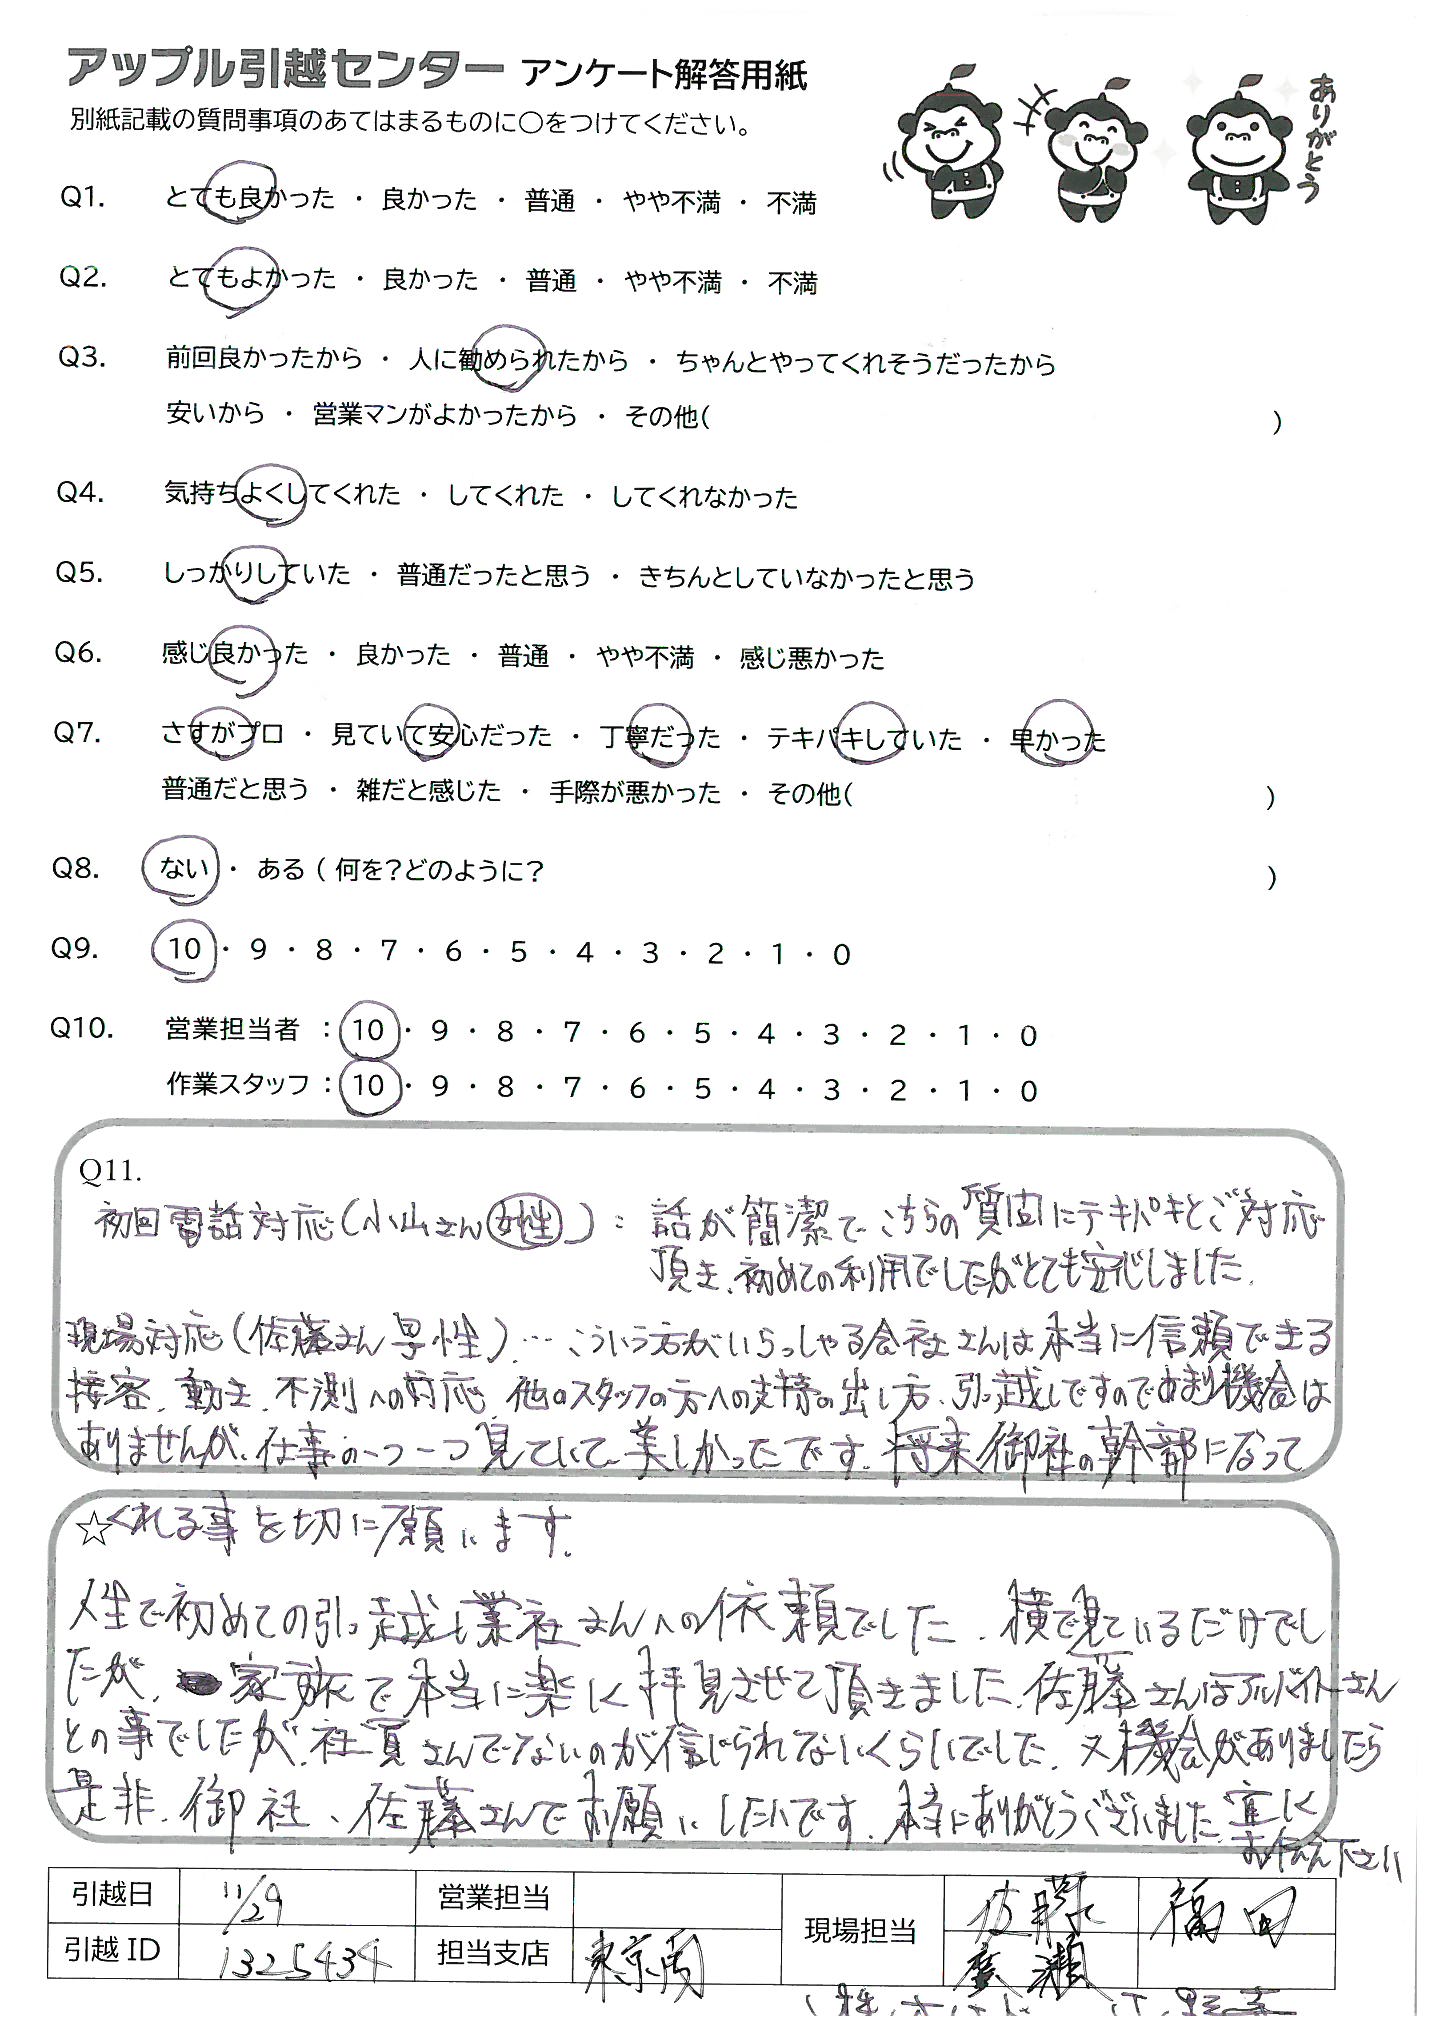 アップル引越センター アンケート解答用紙
別紙記載の質問事項のあてはまるものに○をつけてください。
ありがとう
Q1. とても良かった ・ 良かった ・ 普通 ・ やや不満 ・ 不満
Q2. とてもよかった ・ 良かった ・ 普通 ・ やや不満 ・ 不満
Q3. 前回良かったから ・ 人に勧められたから ・ ちゃんとやってくれそうだったから
安いから ・ 営業マンがよかったから ・ その他( )
Q4. 気持ちよくしてくれた ・ してくれた ・ してくれなかった
Q5. しっかりしていた ・ 普通だったと思う ・ きちんとしていなかったと思う
Q6. 感じ良かった ・ 良かった ・ 普通 ・ やや不満 ・ 感じ悪かった
Q7. さすがプロ ・ 見ていて安心だった ・ 丁寧だった ・ テキパキしていた ・ 早かった
普通だと思う ・ 雑だと感じた ・ 手際が悪かった ・ その他( )
Q8. ない ・ ある ( 何を?どのように? )
Q9. 10 ・ 9 ・ 8 ・ 7 ・ 6 ・ 5 ・ 4 ・ 3 ・ 2 ・ 1 ・ 0
Q10. 営業担当者 : 10 ・ 9 ・ 8 ・ 7 ・ 6 ・ 5 ・ 4 ・ 3 ・ 2 ・ 1 ・ 0
作業スタッフ : 10 ・ 9 ・ 8 ・ 7 ・ 6 ・ 5 ・ 4 ・ 3 ・ 2 ・ 1 ・ 0
Q11.
初回電話対応(小山さん女性): 話が簡潔で、こちらの質問にテキパキとご対応
頂き、初めての利用でしたがとても安心しました。
現場対応(佐藤さん男性)… こういう方がいらっしゃる会社さんは本当に信頼できる
接客、動き、不測への対応、他のスタッフの方への支持の出し方、引っ越しですのであまり機会は
ありませんが、仕事の一つ一つ見ていて、美しかったです。将来御社の幹部になって
☆くれる事を切に願います。
人生で初めての引っ越し業社さんへの依頼でした。横で見ているだけでし
たが、家族で本当に楽しく拝見させて頂きました。佐藤さんはアルバイトさん
との事でしたが、社員さんでないのが信じられないくらいでした。又機会がありましたら
是非、御社、佐藤さんでお願いしたいです。本当にありがとうございました。宜しく
お伝え下さい
引越日 11/29 営業担当 現場担当 佐藤 福田
引越ID 1325434 担当支店 東京南 廣瀬